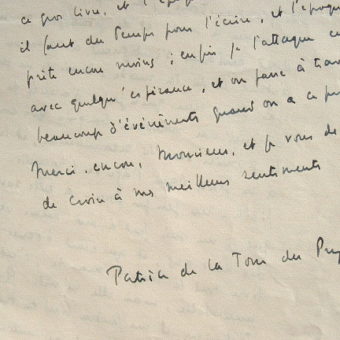 ce gros livre, et l'
il faut du temps pour l'écrire, et l'époque
prête encore moins ; enfin je l'attaque
avec quelqu'espérance, et on passe à trav
beaucoup d'événements quand on a ce pr
Merci, encore, Monsieur, et je vous de
de croire à mes meilleurs sentiments
Patrice de La Tour du Pin